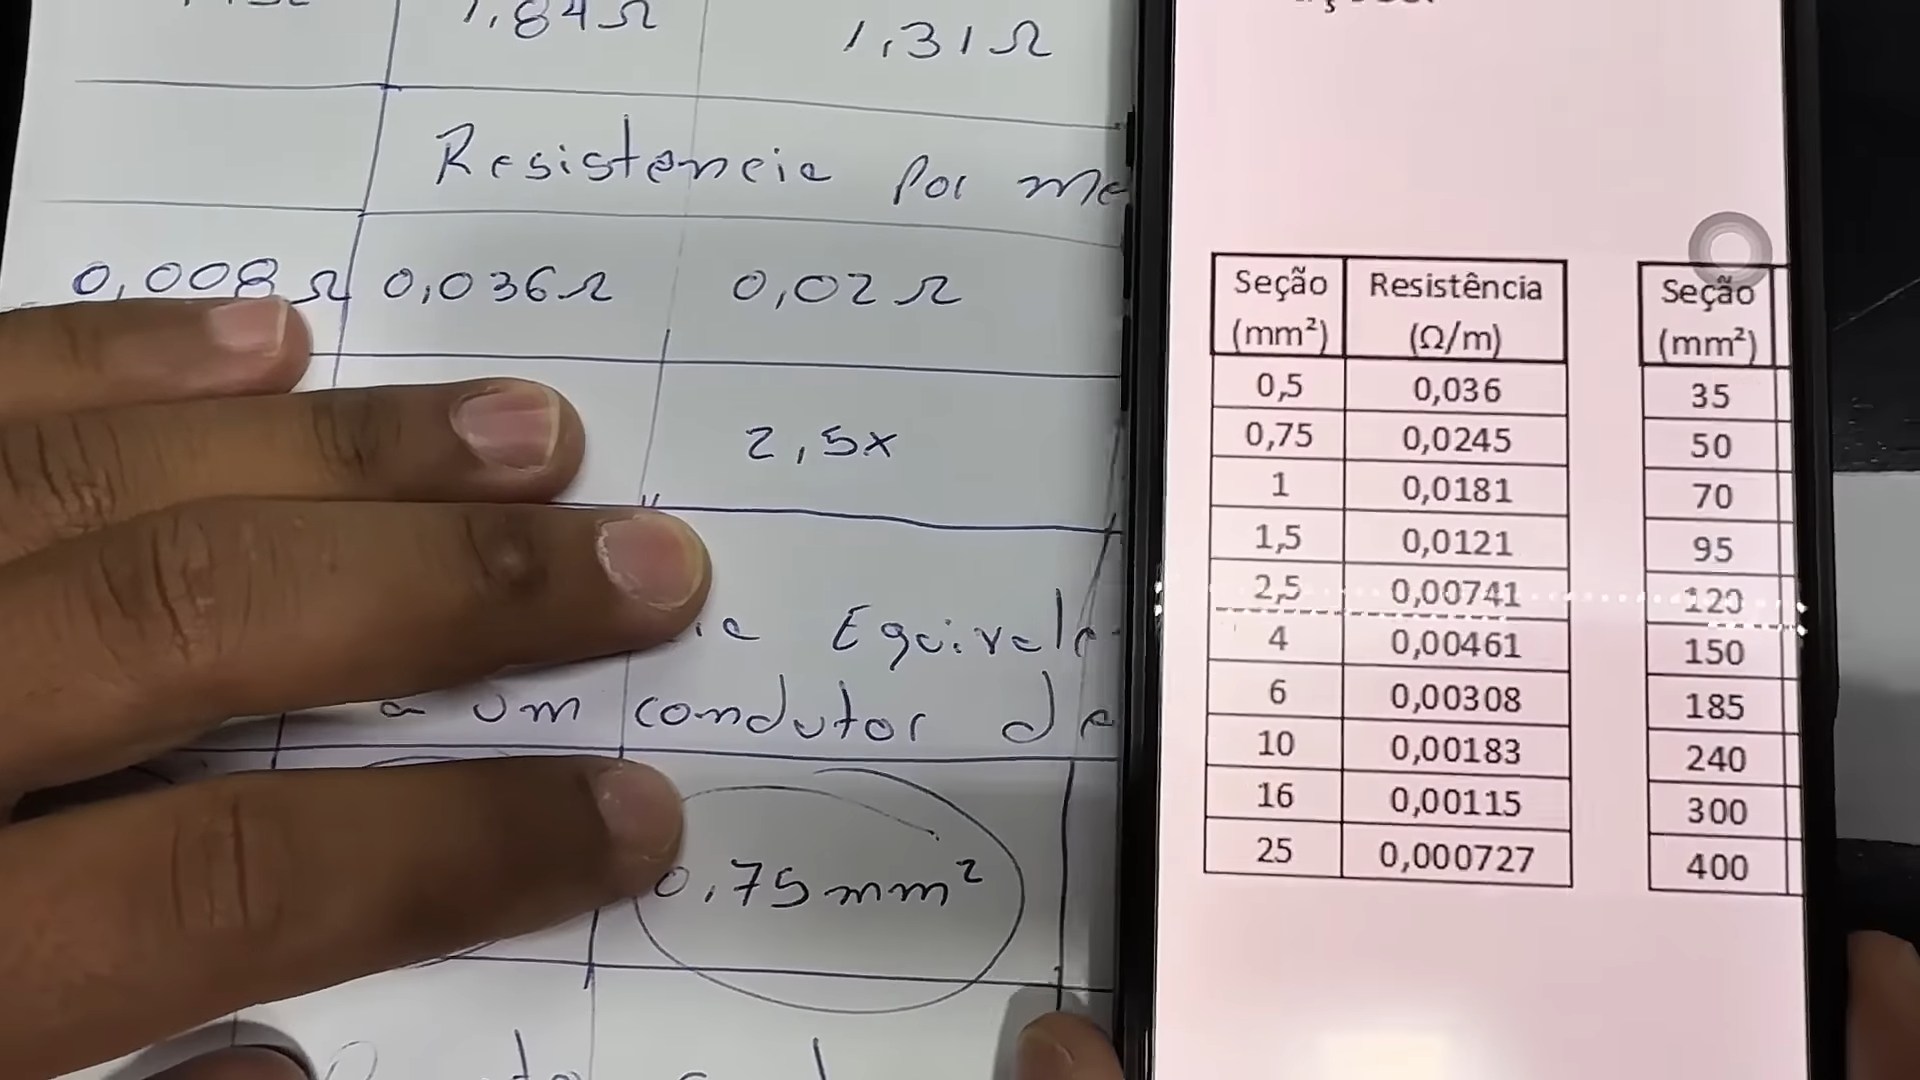 1,84Ω 1,31Ω
Resistencia Por me
0,008Ω 0,036Ω 0,02Ω
2,5x
Equivale
a um condutor de
0,75mm²
Seção (mm²) Resistência (Ω/m)
0,5 0,036
0,75 0,0245
1 0,0181
1,5 0,0121
2,5 0,00741
4 0,00461
6 0,00308
10 0,00183
16 0,00115
25 0,000727
Seção
(mm²)
35
50
70
95
120
150
185
240
300
400